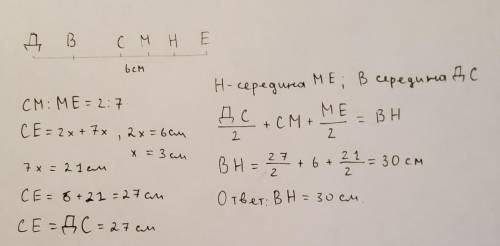 Д В С М Н Е
6см
СМ : МЕ = 2 : 7
СЕ = 2х + 7х , 2х = 6см
х = 3 см
7х = 21 см
СЕ = 6 + 21 = 27 см
СЕ = ДС = 27 см
Н - середина МЕ ; В середина ДС
ДС/2 + СМ + МЕ/2 = ВН
ВН = 27/2 + 6 + 21/2 = 30 см
Ответ: ВН = 30 см.